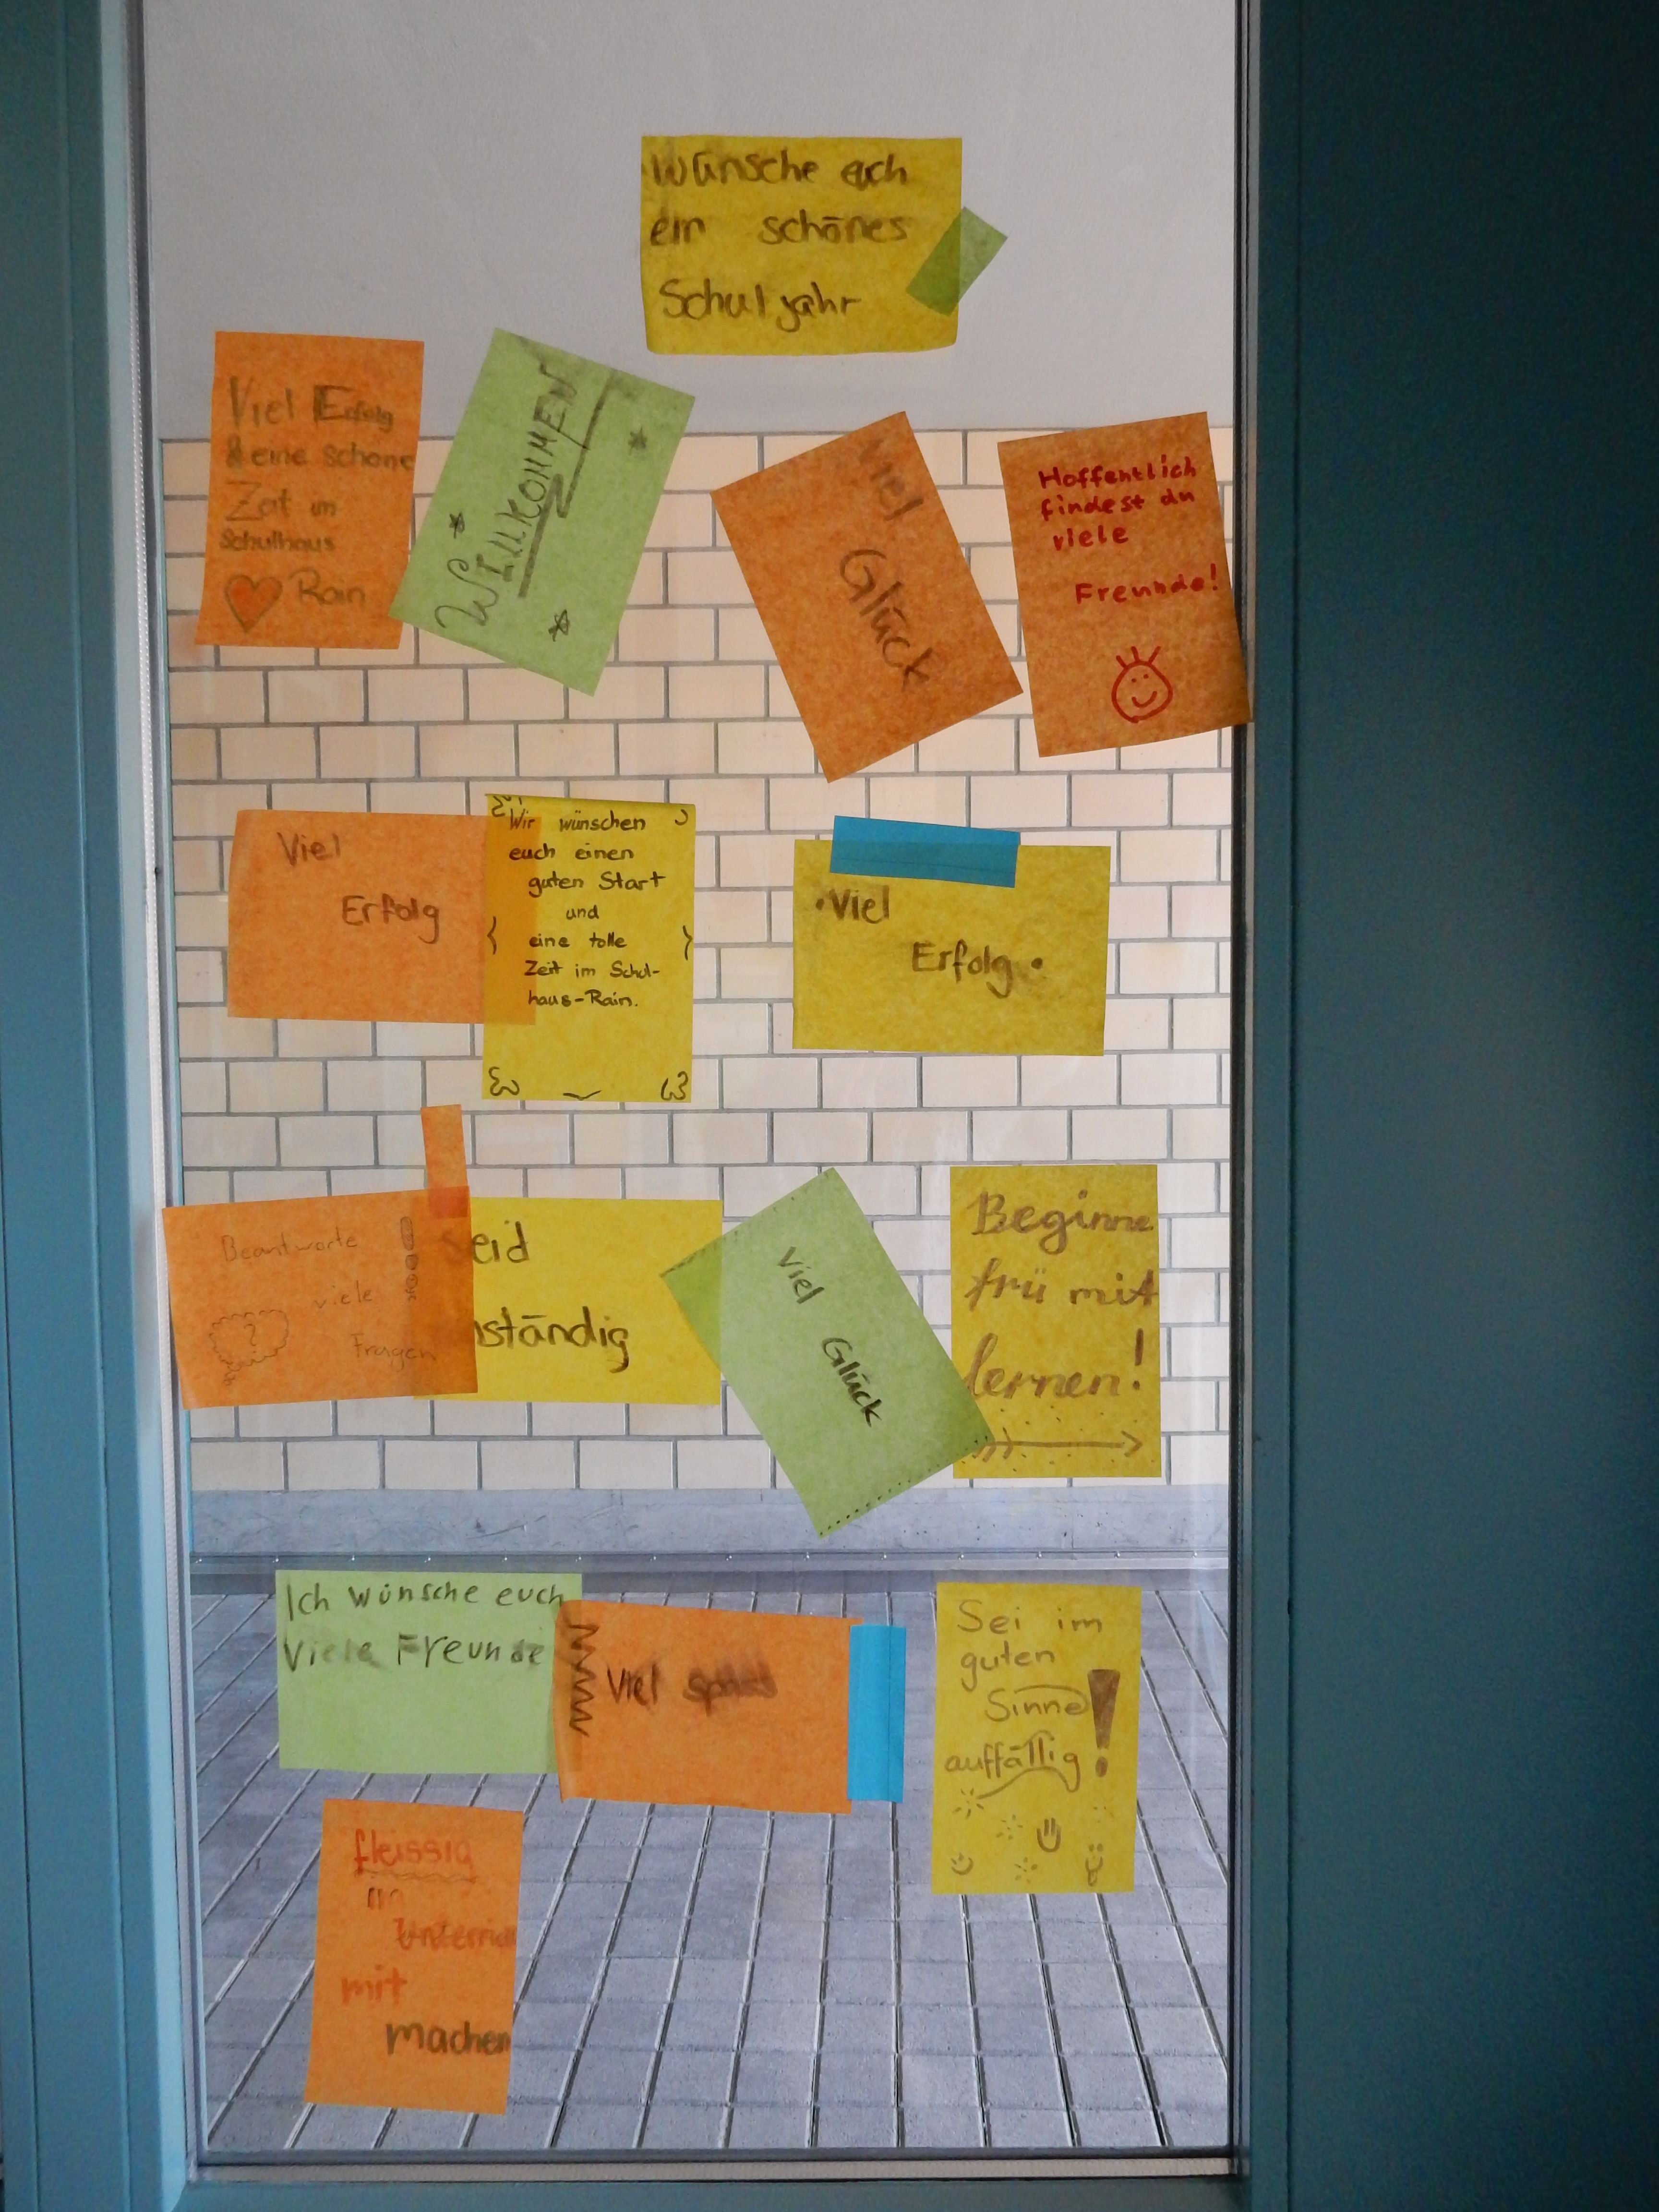 Wünsche euch
ein schönes
Schuljahr
Viel Erfolg
& eine schöne
Zeit im
Schulhaus
Rain
WILLKOMMEN
Viel
Glück
Hoffentlich
findest du
viele
Freunde!
Viel
Erfolg
Wir wünschen
euch einen
guten Start
und
eine tolle
Zeit im Schul-
haus-Rain.
•Viel
Erfolg•
Beantworte
viele
Fragen
?
Seid
nständig
Viel
Glück
Beginne
frü mit
lernen!
Ich wünsche euch
Viele Freunde
Viel spass
Sei im
guten
Sinne
auffällig!
fleissig
im
Unterric
mit
machen